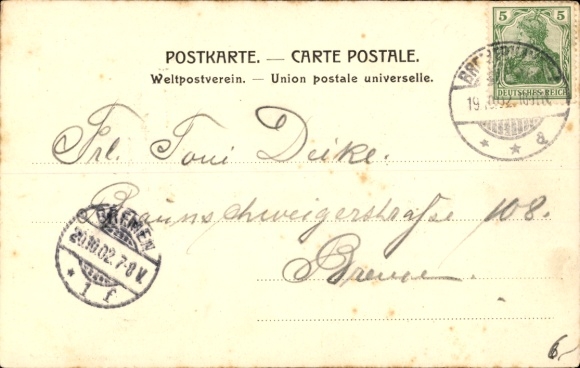 POSTKARTE. — CARTE POSTALE.
Weltpostverein. — Union postale universelle.
5 5
DEUTSCHES REICH
19.
* * a
Frl. Toni Deike.
Braunschweigerstraße 108.
Bremen.
BREMEN
20.10.02.7-8V.
* 1 f
6,-